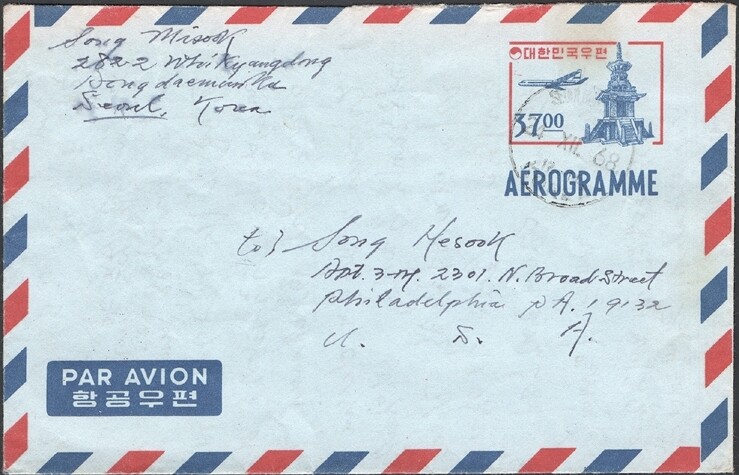 Song Misook
282-2 Whikyungdong
Dongdaemunku
Seoul, Korea
대한민국우편
3700
XII. 68
AÉROGRAMME
to) Song Hesook
Apt. 3-M. 2301. N. Broad Street
Philadelphia PA. 19132
U. S. A.
PAR AVION
항공우편